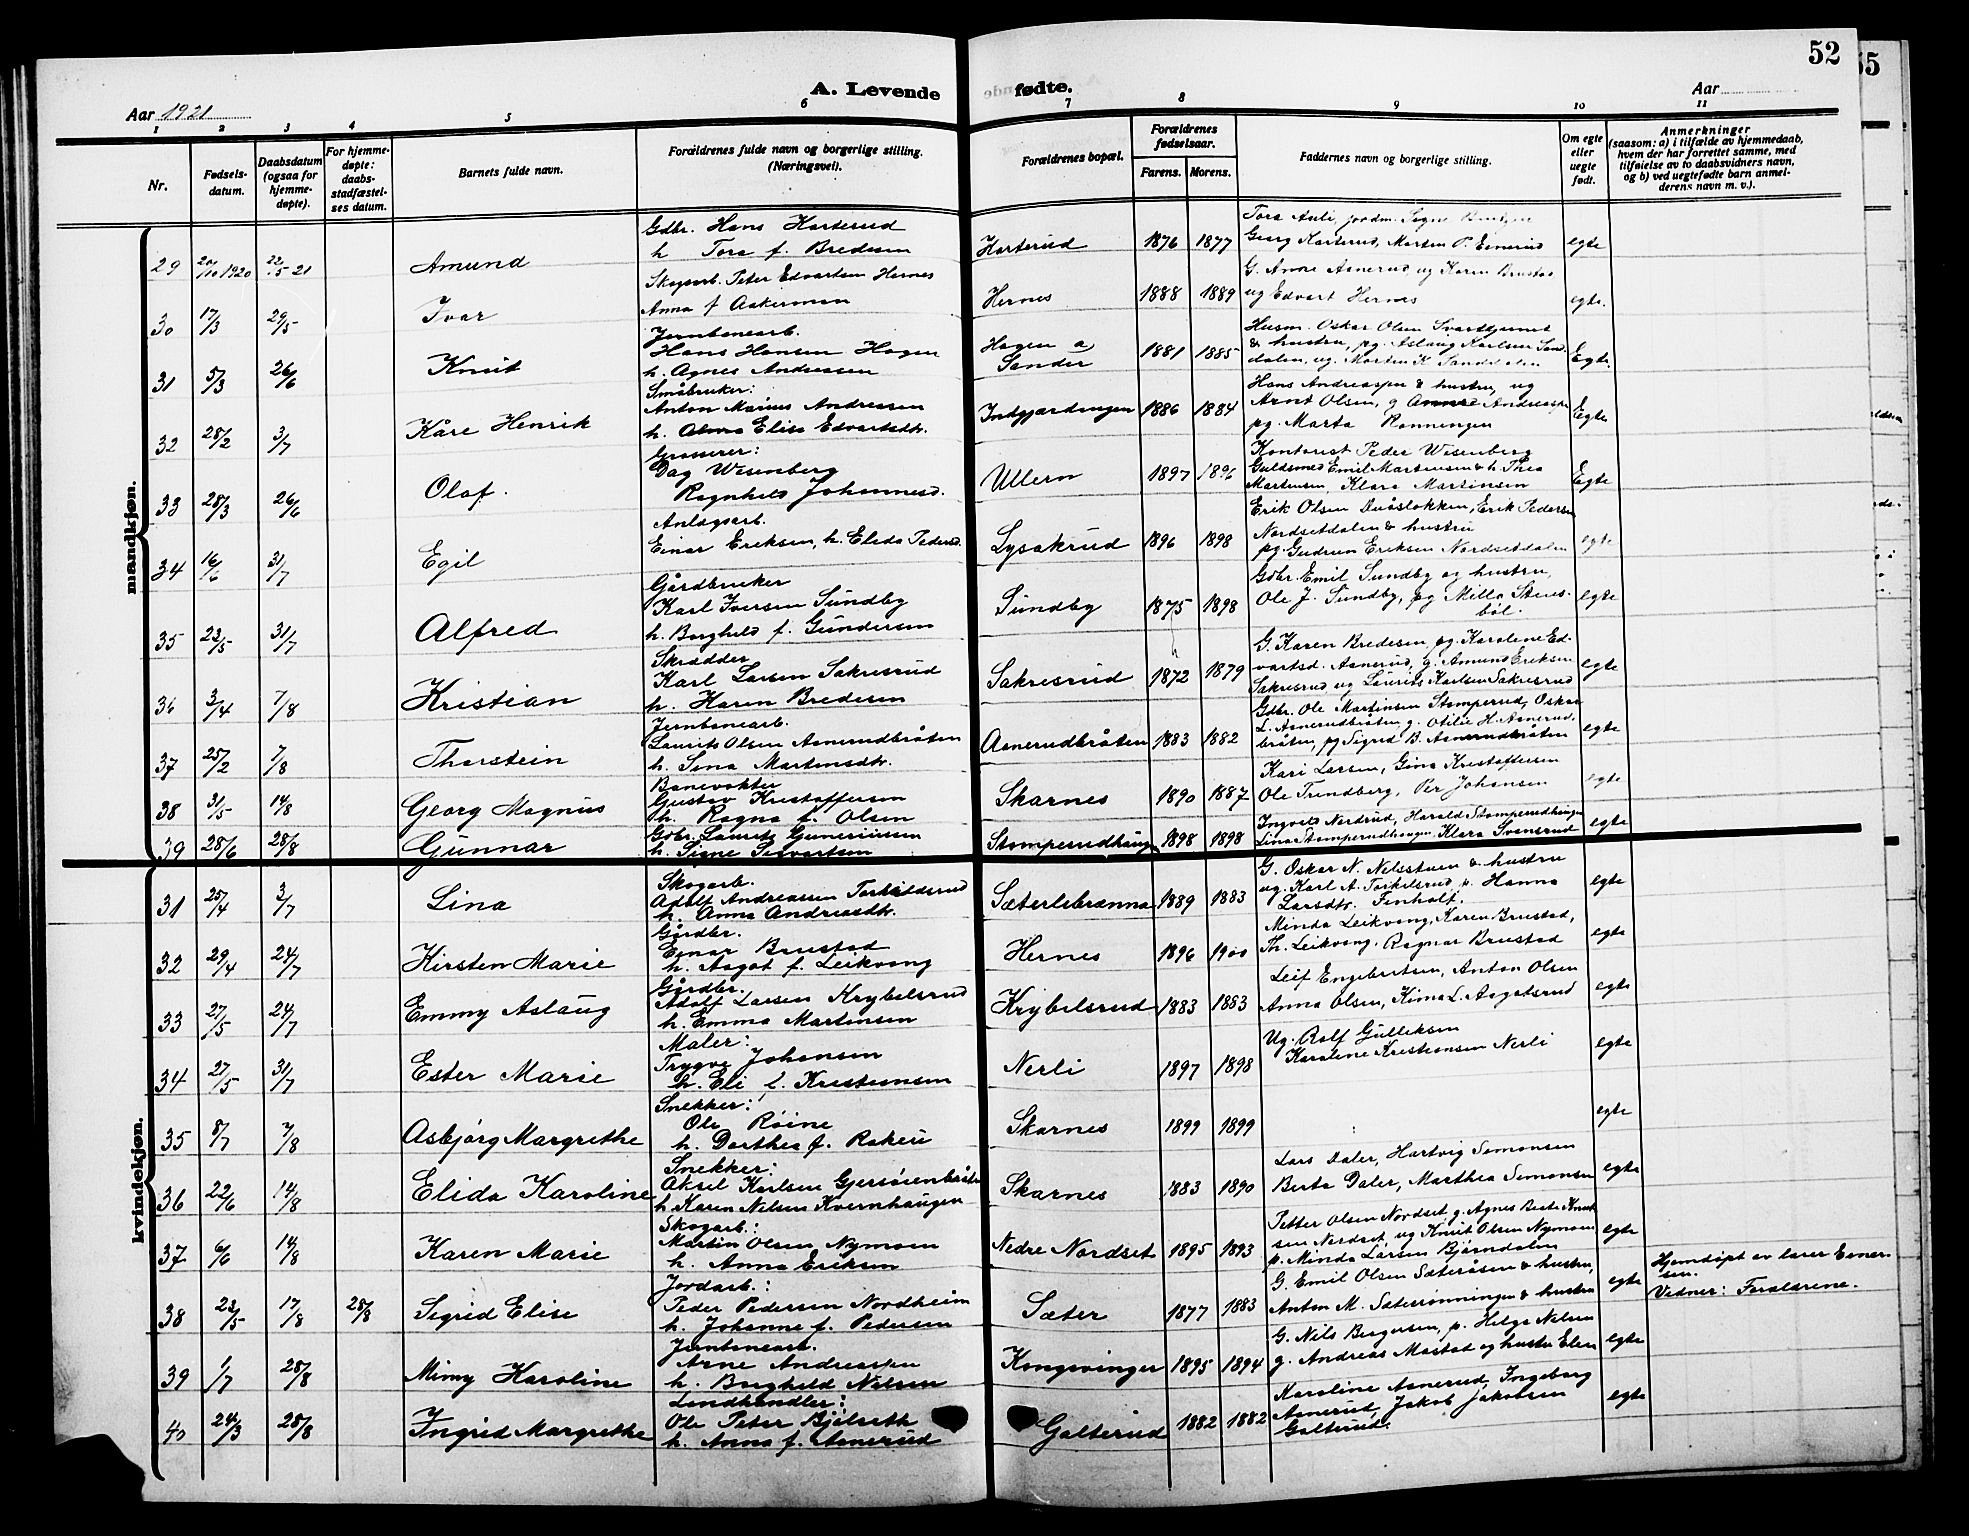 52
55
A. Levende fødte.
Aar 1921
Aar
1 2 3 4 5 6 7 8 9 10 11
Nr.
Fødsels-
datum.
Daabsdatum
(ogsaa for
hjemme-
døpte).
For hjemme-
døpte:
daabs-
stadfæstel-
ses datum.
Barnets fulde navn.
Forældrenes fulde navn og borgerlige stilling.
(Næringsvei).
Forældrenes bopæl.
Forældrenes
fødselsaar.
Farens. Morens.
Faddernes navn og borgerlige stilling.
Om egte
eller
uegte
født.
Anmerkninger
(saasom: a) i tilfælde av hjemmedaab,
hvem der har forrettet samme, med
tilføielse av to daabsvidners navn,
og b) ved uegtefødte barn anmel-
derens navn m. v.).
mandkjøn.
29 20/10 1920 22/5 21 Amund
Gdbr. Hans Harterud
h. Tora f. Bredesen
Harterud 1876 1877
Tora Auli, jordm. Signe
Georg Harterud, Marten P. Einerud
egte
30 17/3 29/5 Ivar
Skogsarb. Peter Edvartsen Hernes
Anna f Aakerman
Hernes 1888 1889
G. Anne Asnerud ug Karen Brustad
ug Edvart Hernes
egte.
31 5/3 26/6 Knut
Jernbanearb.
Hans Hansen Hagen
h. Agnes Andreasen
Hagen a
Sander 1881 1885
Husm. Oskar Olsen Svarttjernet
& hustru, pg. Aslaug Karlsen Sand-
dalen, ug. Morten K. Sanddalen
Egte.
32 28/2 3/7 Kåre Henrik
Småbruker:
Anton Marius Andreasen
h. Alma Elise Edvartsdtr.
Indgjærdingen 1886 1884
Hans Andreassen & hustru, ug
Arnt Olsen, g Andreassen
pg. Marta Rønningen
Egte
33 28/3 26/6 Olaf.
Grosserer:
Dag Wisenberg
Ragnhild Johannesd.
Ullern 1897 1896
Kontorist Peder Wisenberg
Guldsmed Emil Martinsen & h. Thea
Martinsen, Klara Martinsen
Egte
34 16/6 31/7 Egil
Anlægsarb.
Einar Eriksen, h. Elida Pedersd.
Lysakrud 1896 1898
Erik Olsen Duåsløkken, Erik Pedersen
Nordsetdalen & hustru
pg. Gudrun Eriksen Nordsetdalen
egte
35 23/5 31/7 Alfred
Gårdbruker
Karl Iversen Sundby
h. Borghild f. Gundersen
Sundby 1875 1898
Gdbr. Emil Sundby og hustru,
Ole J. Sundby, pg Milla Stens-
bøl.
egte
36 3/4 7/8 Kristian
Skrædder
Karl Larsen Sakresrud
h. Karen Bredesen
Sakresrud 1872 1879
G. Karen Bredesen, pg. Karoline Ed-
vartsd. Asnerud, g. Amund Eriksen
Sakresrud ug Laurits Karlsen Sakresrud
egte
37 25/2 7/8 Thorstein
Jernbanearb.
Laurits Olsen Asnerudbråten
h. Lina Martensdtr.
Asnerudbråten 1883 1882
Gdbr. Ole Martinsen Stomperud, Oskar
L. Asnerudbråten, g. Otilie H. Asnerud-
bråten, pg Sigrid B. Asnerudbråten
egte
38 31/5 14/8 Georg Magnus
Banevokter
Gustav Kristoffersen
h. Ragna f. Olsen
Skarnes 1890 1887
Kari Larsen, Gina Kristoffersen
Ole Trundberg, Per Johansen
egte
39 28/6 28/8 Gunnar
Gdbr. Laurits Gunerinssen
h. Signe Sigvartsen
Stomperudhaugen 1898 1898
Ingvald Nordrud, Harald Stomperudhaugen
Lina Stomperudhaugen, Klara Svensrud
egte
kvindekjøn.
31 25/4 3/7 Lina
Skogarb.
Adolf Andreassen Torkildsrud
h. Anna Andreasdtr.
Sæterlebrænna 1889 1883
G. Oskar N. Nilsstuen & hustru
ug. Karl A. Torkilsrud, p. Hanna
Larsdtr. Finholt.
egte
32 29/4 24/7 Kirsten Marie
Gårdbr.
Einar Brustad
h. Aagot f. Leikvang
Hernes 1896 1900
Minda Leikvang, Karen Brustad,
Th. Leikvang, Ragnar Brustad
egte
33 27/5 24/7 Emmy Aslaug
Gårdbr.
Adolf Larsen Krybelsrud
h. Emma Martinsen
Krybelsrud 1883 1883
Leif Engebretsen, Anton Olsen
Anna Olsen, Kima L. Aagotsrud
egte
34 27/5 31/7 Ester Marie
Maler:
Trygve Johansen
h. Eli f. Kristiansen
Nerli 1897 1898
Ug. Rolf Gulliksen
Karoline Kristiansen Nerli
egte
35 8/7 7/8 Asbjørg Margrethe
Snekker:
Ole Røine
h. Dorthea f. Rakeie
Skarnes 1899 1899
egte
36 22/6 14/8 Elida Karoline
Snekker:
Aksel Karlsen Gjersøienbråten
h. Karen Nilsen Kvernhaugen
Skarnes 1883 1890
Lars Daler, Hartvig Simonsen
Berta Daler, Marthea Simonsen
egte
37 6/6 14/8 Karen Marie
Skogarb.:
Martin Olsen Nymoen
h. Anna Eriksen
Nedre Nordset 1895 1893
Petter Olsen Nordset, g. Agnes Berte Knut-
sen Nordset, ug Knut Olsen Nymoen
p. Minda Larsen Bjørndalen
egte
38 23/5 17/8 28/8 Sigrid Elise
Jordarb.:
Peder Pedersen Nordheim
h. Johanne f. Pedersen
Sæter 1877 1883
G. Emil Olsen Sæteråsen & hustru,
Anton M. Sæterrønningen & hustru
egte
Hjemdøpt av lærer Einer-
sen.
Vidner: Forældrene.
39 1/7 28/8 Mimy Karoline
Jernbanearb.
Arne Andreassen
h. Borghild Nilsen
Kongsvinger 1895 1894
G. Nils Birgersen, p. Helga Nilsen
g. Andreas Mastad og hustru Elen
egte
40 24/3 28/8 Ingrid Margrethe
Landhandler:
Ole Peter Bjølseth
h. Anna f. Asnerud
Galterud 1882 1882
Karoline Asnerud, Ingeborg
Asnerud, Jakob Jakobsen
Galterud.
egte